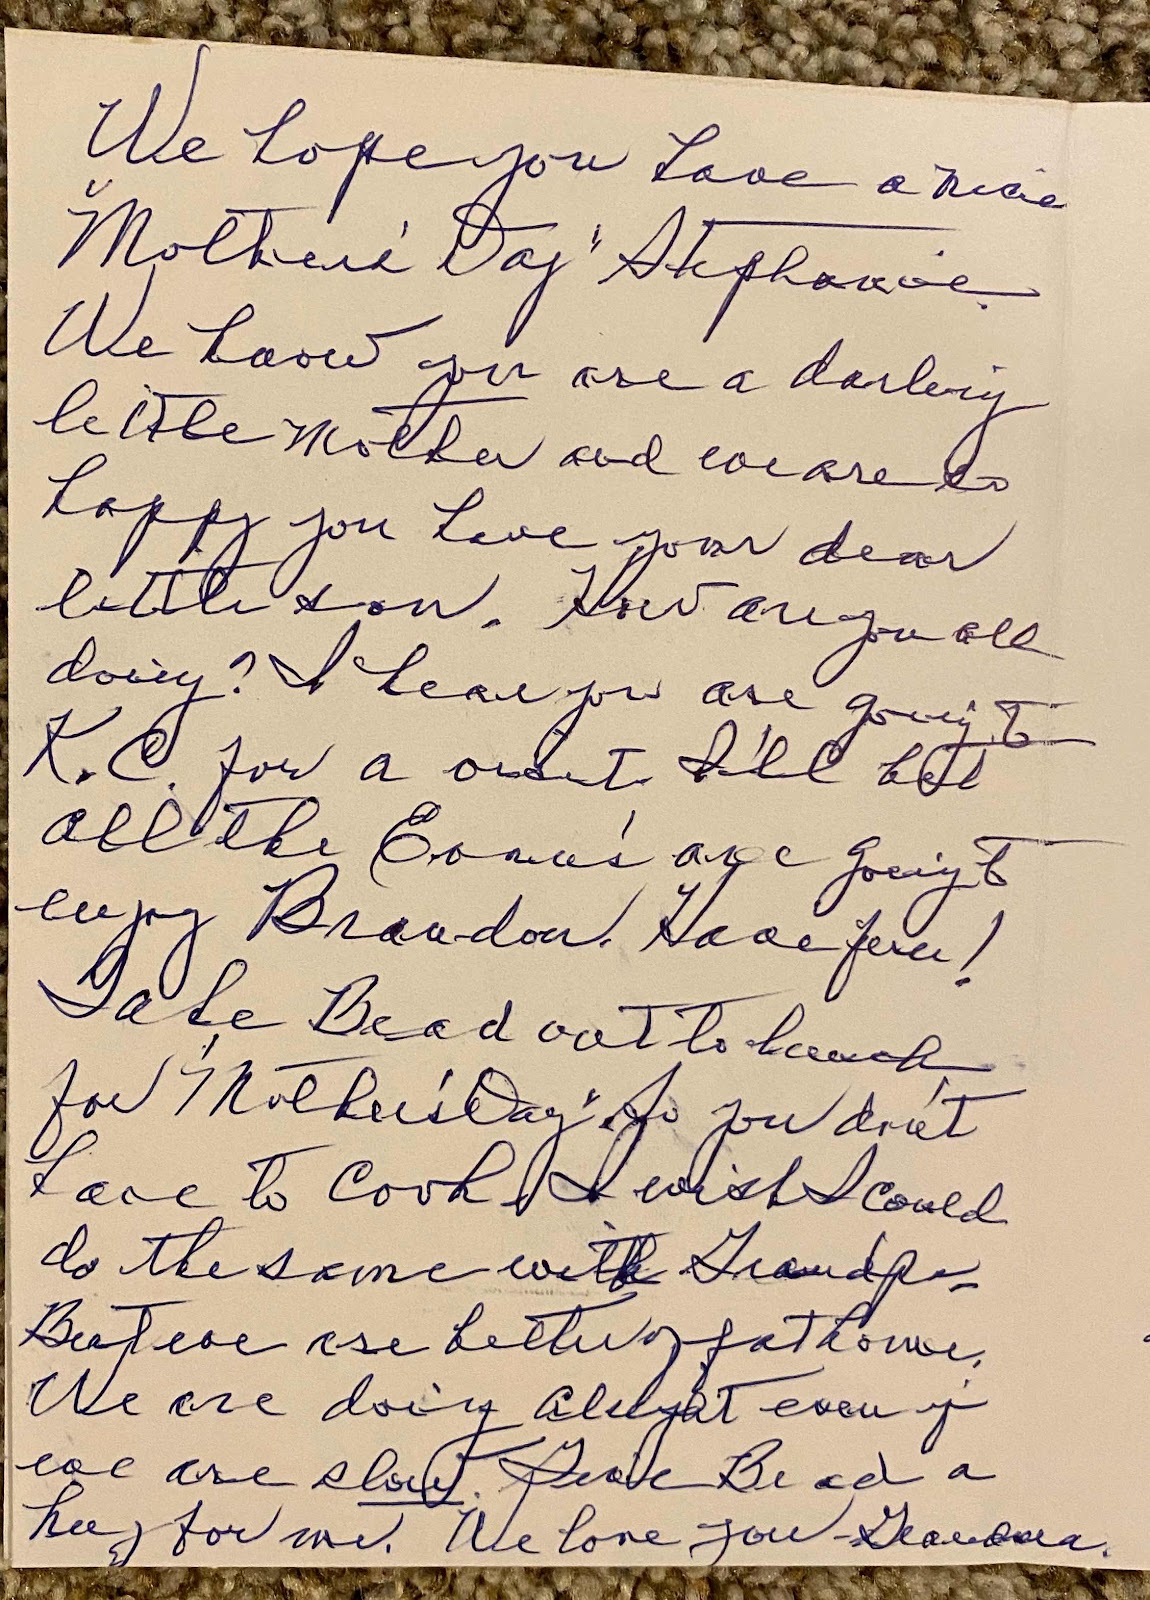 We hope you have a nice
"Mother's Day" Stephanie.
We know you are a darling
little Mother and we are so
happy you have your dear
little son. How are you all
doing? I hear you are going to
K.C. for a visit. I'll bet
all the are going to
enjoy Brandon. Have fun!
Take Brad out to lunch
for "Mother's Day". So you don't
have to cook. I wish I could
do the same with Grandpa.
But we are better off at home.
We are doing alright even if
we are slow. Give Brad a
hug for me. We love you - Grandma.